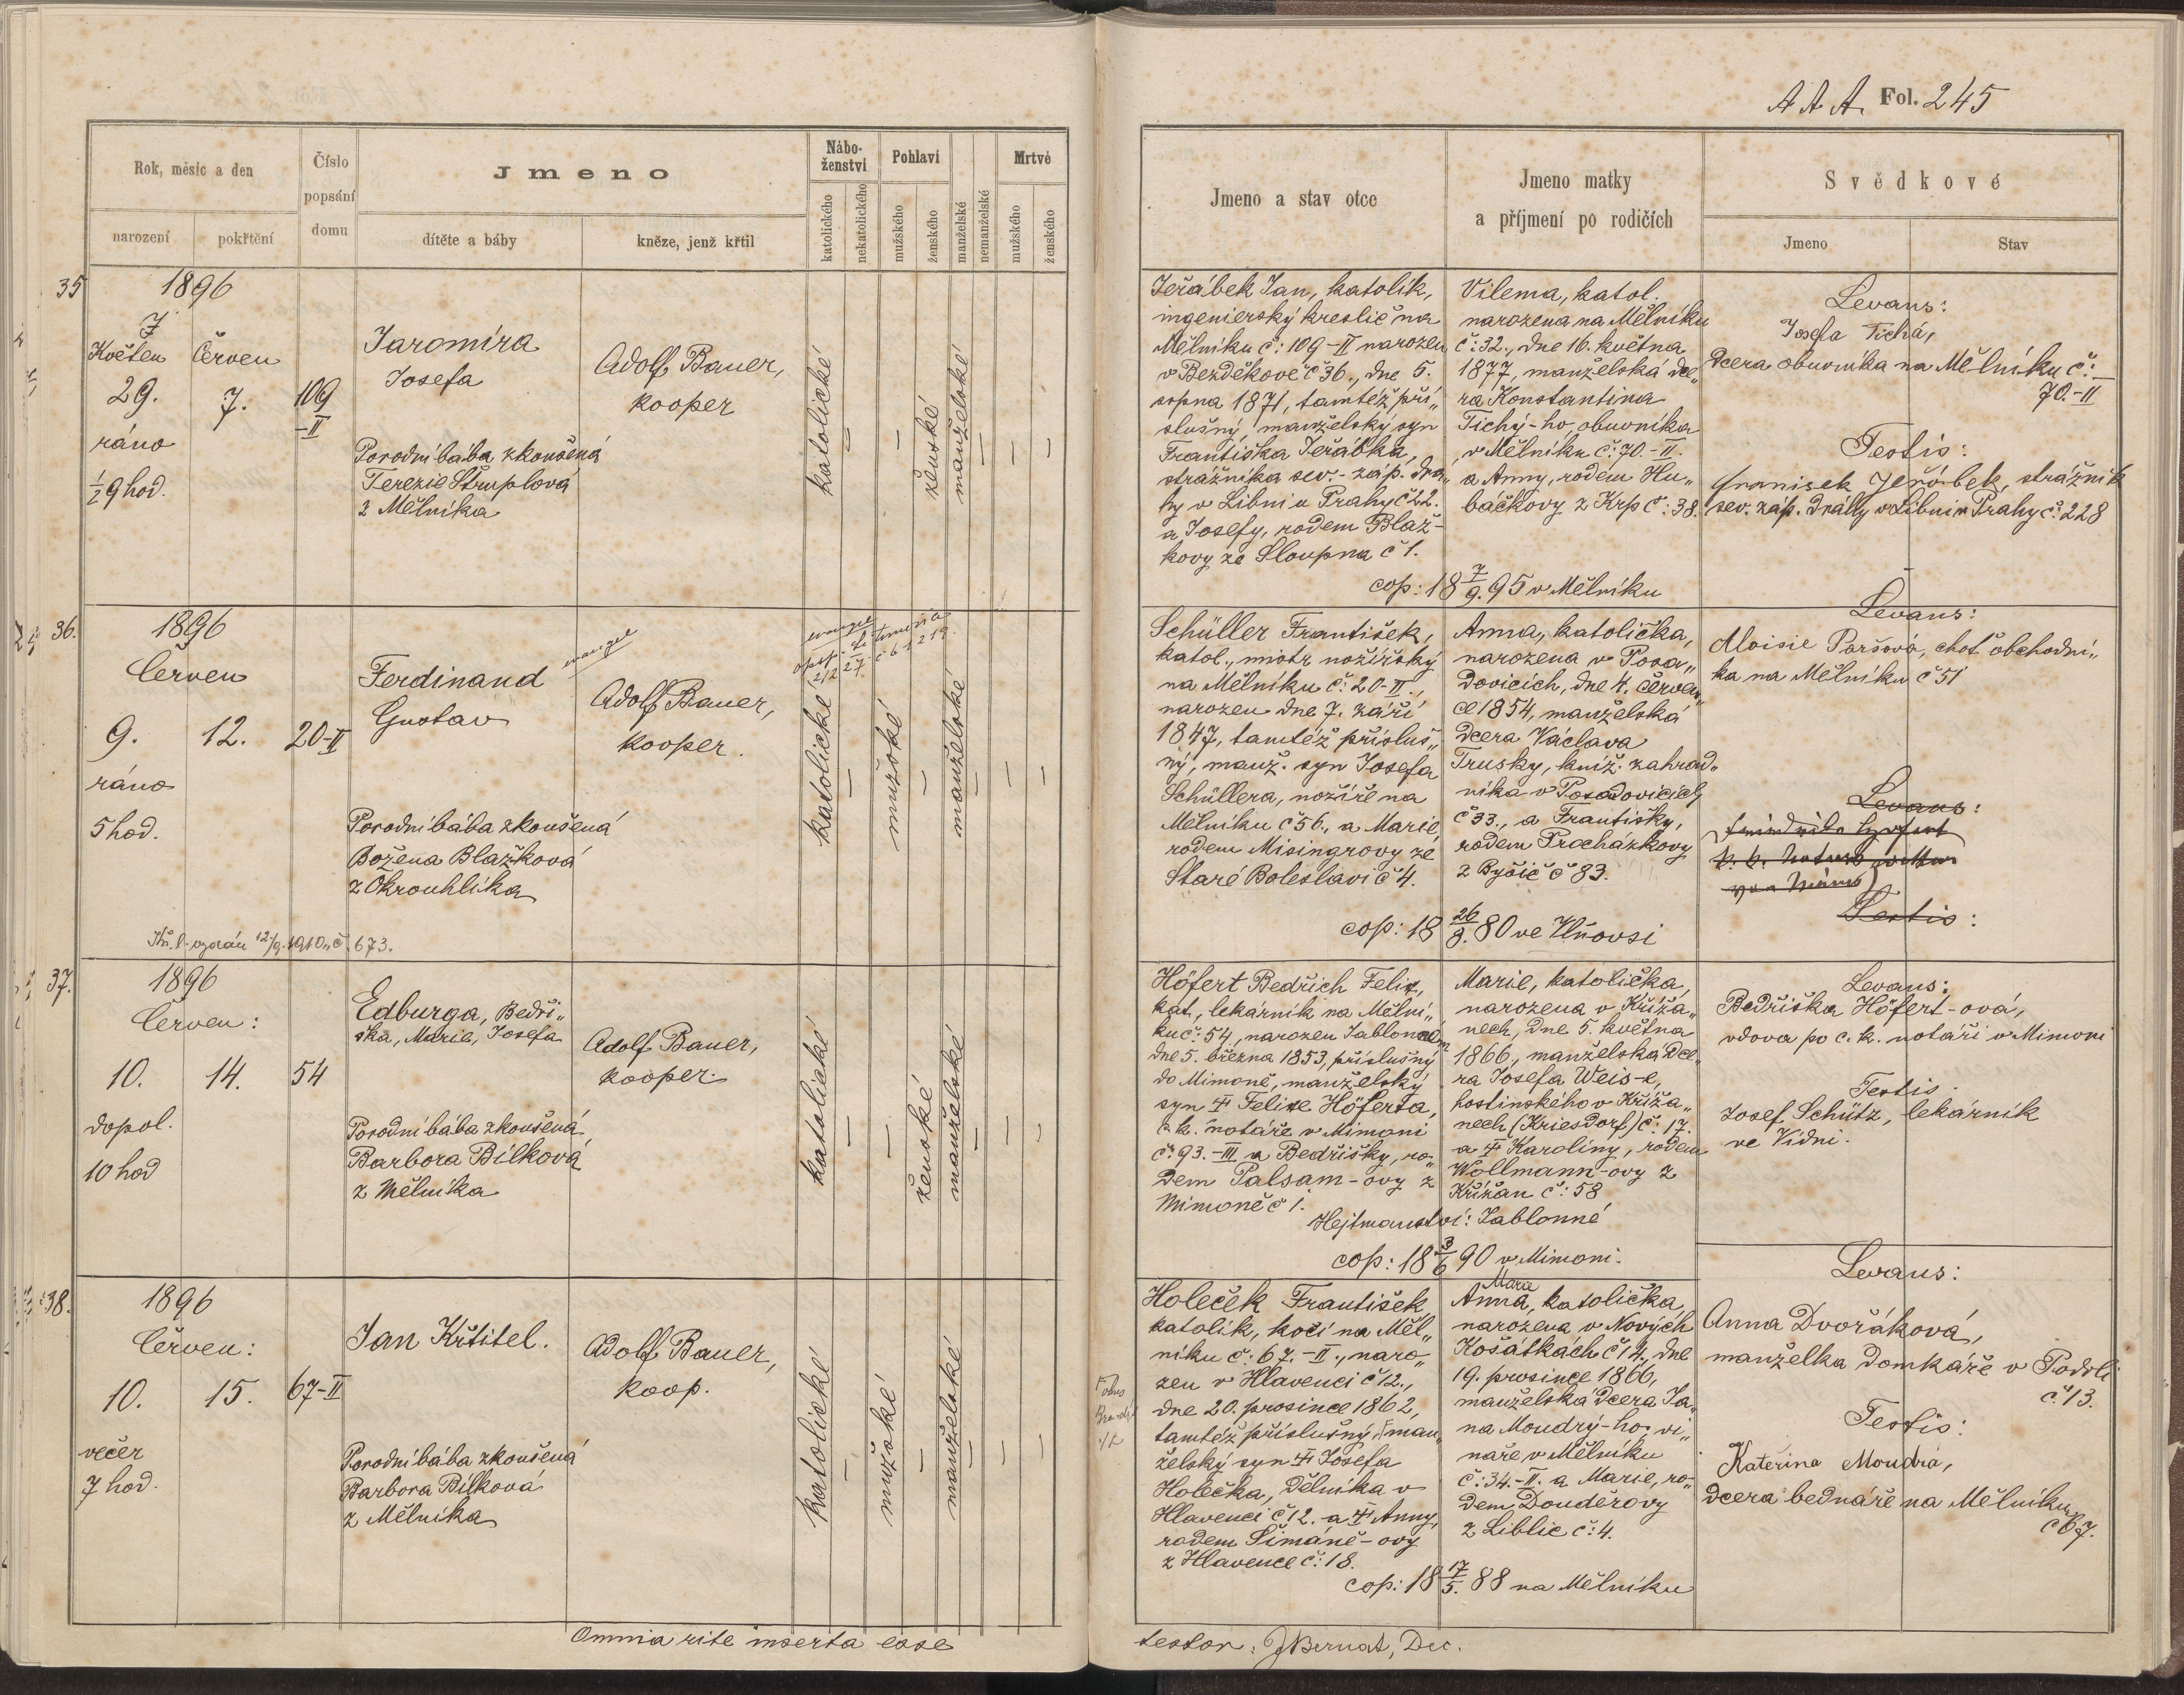 A A A. Fol. 245
Rok, měsíc a den
narození
pokřtění
Číslo
popsání
domu
Jmeno
dítěte a báby
kněze, jenž křtil
Nábo-
ženství
katolického
nekatolického
Pohlaví
mužského
ženského
manželské
nemanželské
Mrtvé
mužského
ženského
Jmeno a stav otce
Jmeno matky
a příjmení po rodičích
Svědkové
Jmeno
Stav
35
1896
Květen
Červen
29.
7.
109
-II
ráno
1/2 9 hod.
Jaromíra
Josefa
Porodní bába zkoušená
Terezie Štruplová
z Mělníka
Adolf Bauer,
kooper
katolické
ženské
manželské
Jeřábek Jan, katolík,
ingenierský kreslič na
Mělníku č: 109-II narozen
v Bezděkově č 36., dne 5.
srpna 1871, tamtéž pří„
slušný, manželský syn
Františka Jeřábka,
strážníka sev.- záp. drá„
hy v Libni u Prahy č 22.
a Josefy, rodem Blaž-
kovy ze Sloupna č 1.
Vilema, katol.
narozena na Mělníku
č: 32., dne 16. května
1877, manželská dce„
ra Konstantina
Tichý-ho, obuvníka
v Mělníku č: 70.-II.
a Anny, rodem Hu„
bačkovy z Krp č: 38.
cop: 18 7/9. 95 v Mělníku
Levans:
Josefa Tichá,
dcera obuvníka na Mělníku č:
70.-II
Testis:
Franisek Jeřábek, strážník
sev. záp. Dráhy v Libni u Prahy č. 228
36.
1896
Červen
9.
12.
20-II
ráno
5 hod.
Ferdinand
Gustav
Porodní bába zkoušená
Božena Blažková
z Okrouhlíka
Adolf Bauer,
kooper.
katolické
mužské
manželské
Schüller František,
katol., mistr nožířský
na Mělníku č: 20-II.,
narozen dne 7. září
1847, tamtéž přísluš„
ný, manž. syn Josefa
Schüllera, nožíře na
Mělníku č 56., a Marie,
rodem Misingrovy ze
Staré Boleslavi č 4.
Anna, katolička,
narozena v Posa„
dovicích, dne 4. červen„
ce 1854, manželská
dcera Václava
Trusky, kníž. zahrad„
níka v Posadovicích
č 33., a Františky,
rodem Procházkovy
z Byšic č 83.
cop: 18 26/9. 80 ve Vtelnovsi
Levans:
Aloisie Paršová, choť obchodní„
ka na Mělníku č 51
Levans:
Testis:
Kř. l. vydán 12/9. 1910, č. 673.
37.
1896
Červen:
10.
14.
54
dopol.
10 hod
Edburga, Bedři„
ška, Marie, Josefa
Porodní bába zkoušená
Barbora Bílková
z Mělníka
Adolf Bauer,
kooper.
katolické
ženské
manželské
Höfert Bedřich Felix,
kat., lekárník na Mělní„
ku č: 54, narozen Jablonném
dne 5. března 1853, příslušný
do Mimoně, manželský
syn † Felixe Höferta,
c. k. notáře v Mimoni
č: 93.-III a Bedřišky, ro„
dem Palsam-ovy z
Mimoně č 1.
Marie, katolička,
narozena v Křiža„
nech, dne 5. května
1866., manželská dce„
ra Josefa Weis-e,
hostinského v Križa„
nech (Kriesdorf) č: 17.
a † Karoliny, rodem
Wollmann-ovy z
Křižan č: 58
Hejtmanství: Jablonné
cop: 18 3/6 90 v Mimoni.
Levans:
Bedřiška Höfert-ová,
vdova po c. k. notáři v Mimoni
Testis
Josef Schütz, lekárník
ve Vídni.
38.
1896
Červen:
10.
15.
67-II
večer
7 hod.
Jan Křtitel.
Porodní bába zkoušená
Barbora Bílková
z Mělníka
Adolf Bauer,
koop.
katolické
mužské
manželské
Holeček František
katolík, kočí na Měl„
níku č: 67.-II., naro„
zen v Hlavenci č 12.,
dne 20. prosince 1862,
tamtéž příslušný, man„
želský syn † Josefa
Holečka, dělníka v
Hlavenci č 12. a † Anny,
rodem Šimáně-ovy
z Hlavence č: 18.
Marie
Anna, katolička,
narozena v Nových
Košátkách č 14., dne
19. prosince 1866,
manželská dcera Ja„
na Moudrý-ho, vi„
naře v Mělníku
č: 34.-II. a Marie, ro„
dem Douděrovy
z Liblic č: 4.
cop: 18 17/5. 88 na Mělníku
Levans:
Anna Dvořáková,
manželka domkáře v Podolí
č 13.
Testis:
Kateřina Moudrá,
dcera bednáře na Mělníku
č 67.
Omnia rite inserta esse
testor: J Bernat, Dec.